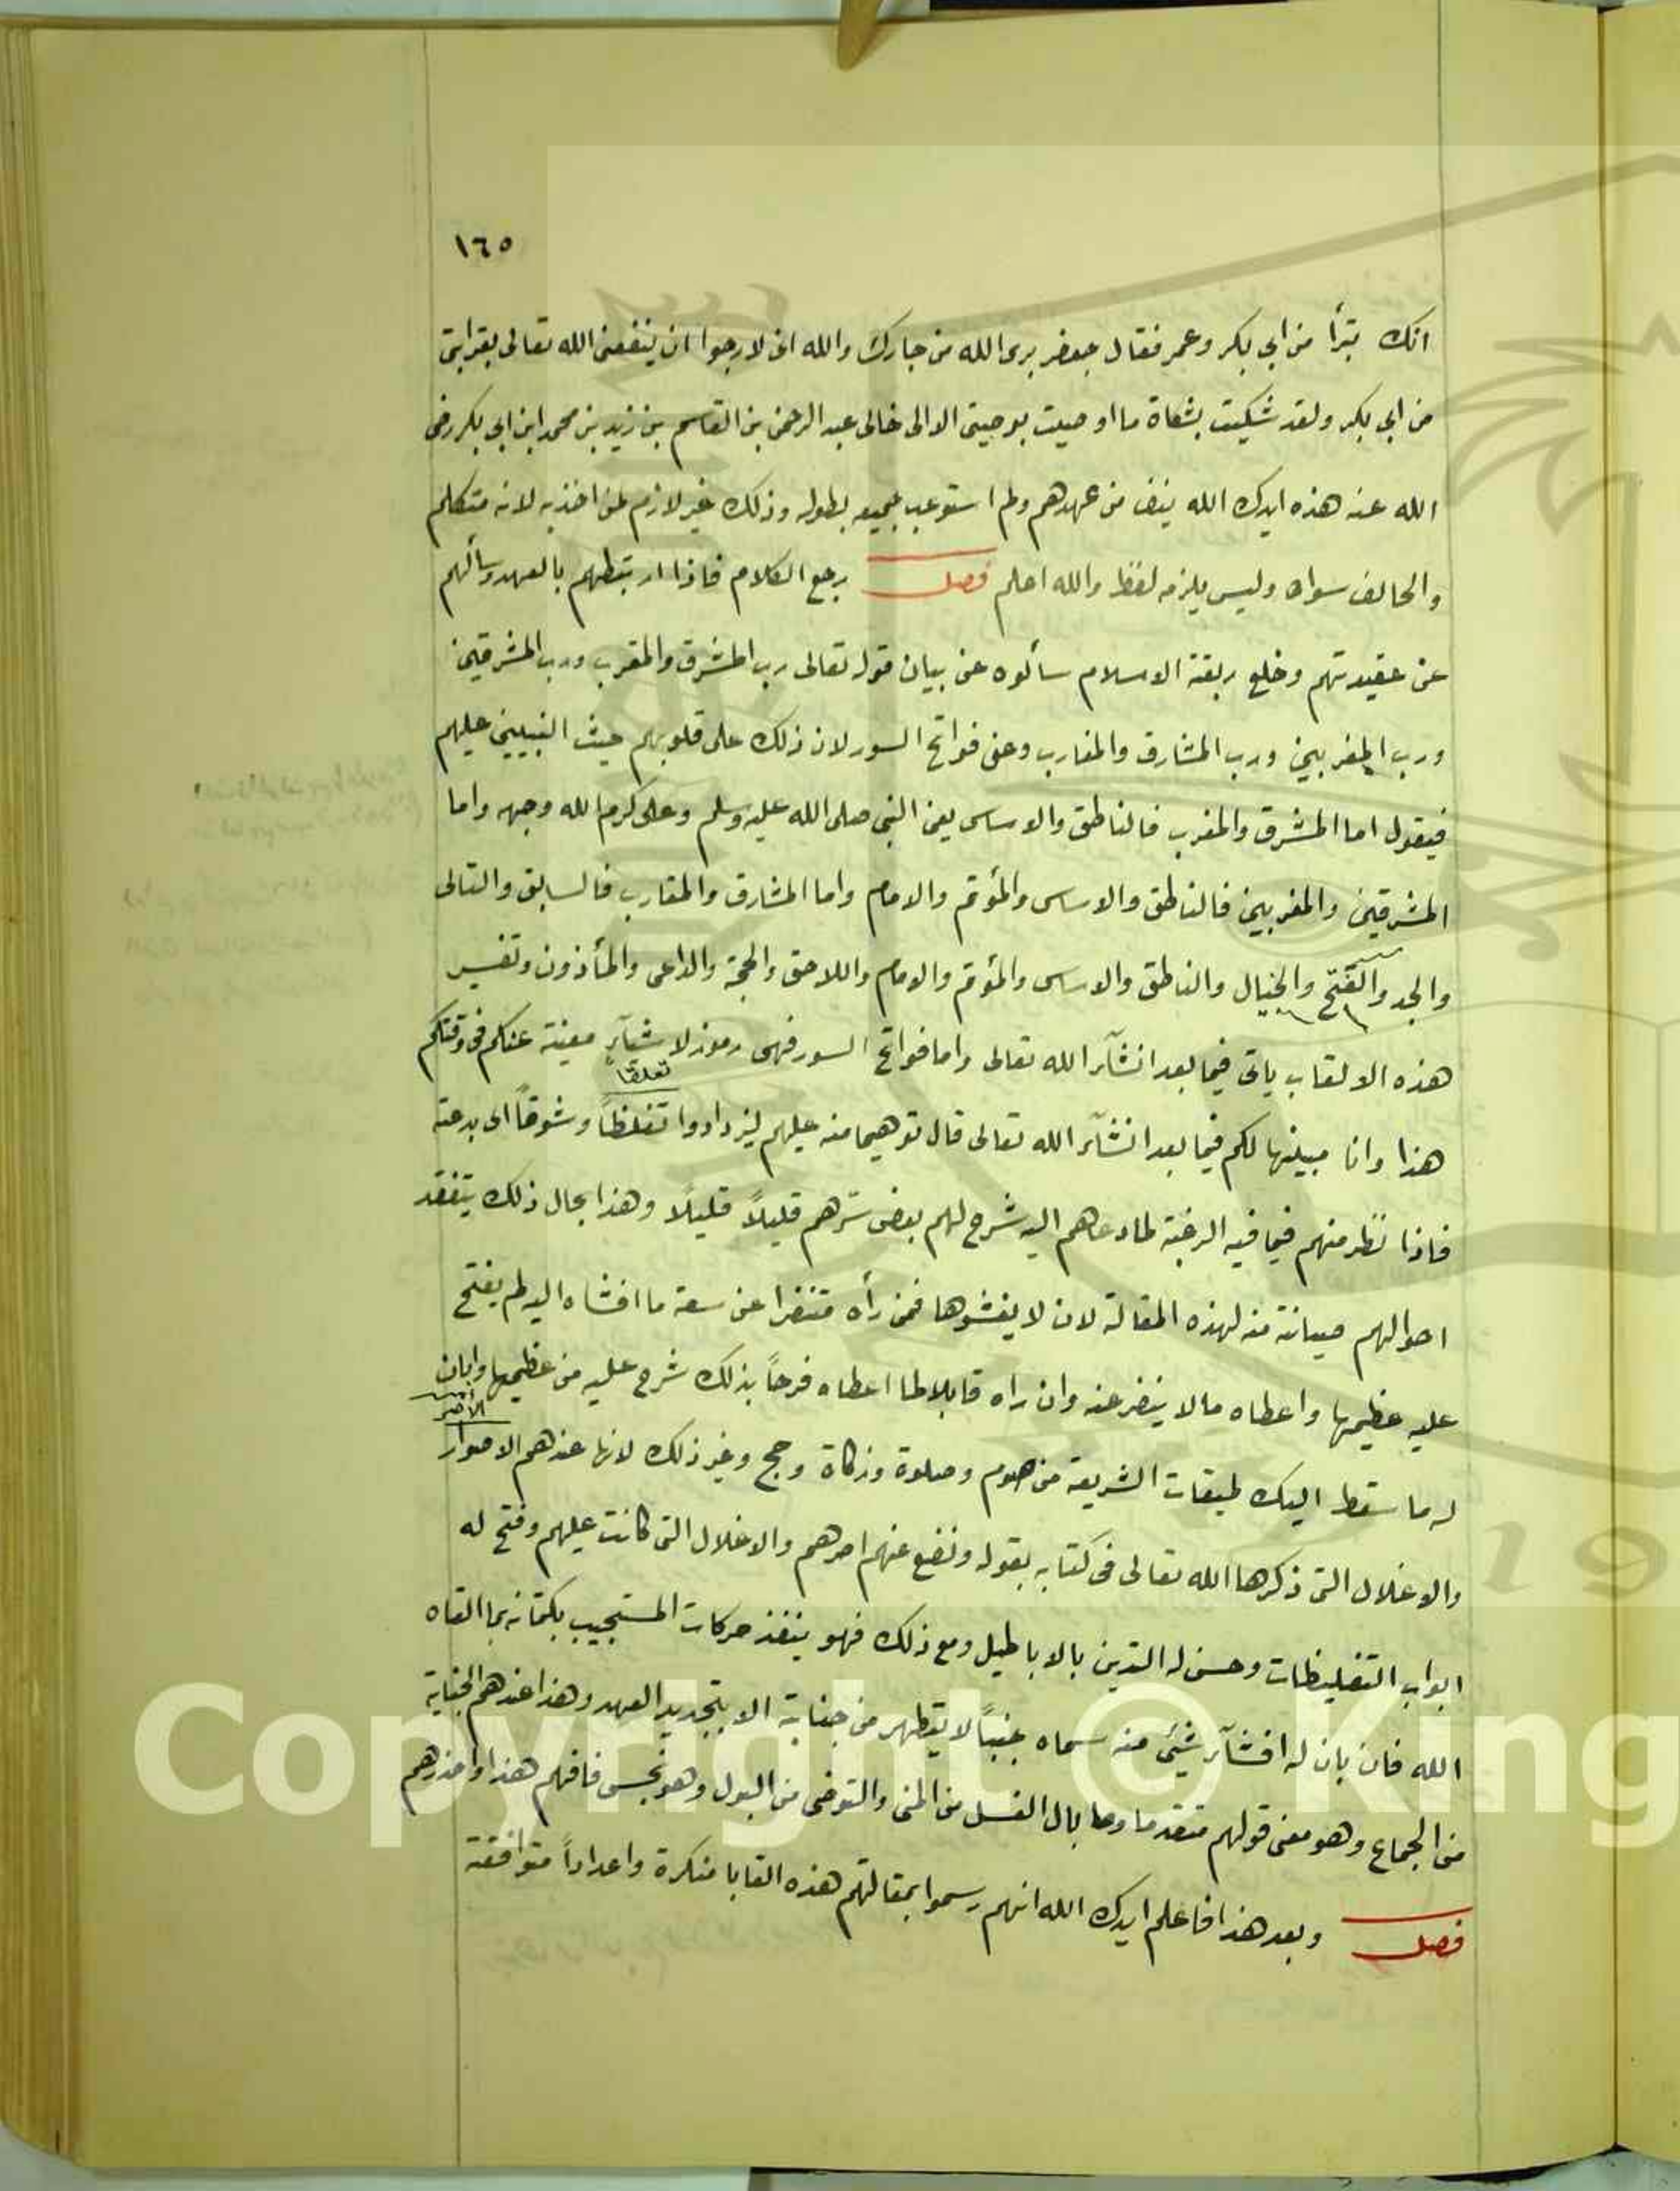 ١٦٥
انك تبرأ من ابي بكر وعمر فقال جعفر برى الله من جارك والله انى لارجوا ان ينفعنى الله تعالى بقرابتى
من ابي بكر ولقد شكيت بشكاة ما اوصيت بوصيتى الا الى خالى عبد الرحمن بن القاسم بن زيد بن محمد ابن ابي بكر رضى
الله عنه هذه ايدك الله من عهدهم ولم استوعب جميعه بطوله وذلك غير لازم لمن اخذ به لانه متكلم
والحالف سواه وليس يلزمه لفظ والله اعلم فصل رجع الكلام فاذا ارتبطهم بالعهد وسألهم
عن عقيدتهم وخلع ربقة الاسلام سألوه عن بيان قوله تعالى رب المشرق والمغرب ورب المشرقين
ورب المغربين ورب المشارق والمغارب وعن فواتح السور لان ذلك على قلوبهم حيث النبيين عليهم
فيقول اما المشرق والمغرب فالناطق والاساس يعنى النبى صلى الله عليه وسلم وعلى كرم الله وجهه واما
المشرقين والمغربين فالناطق والاساس والمؤتم والامام واما المشارق والمغارب فالسابق والتالى
والجد والفتح والخيال والناطق والاساس والمؤتم والامام واللاحق والحجة والداعى والمأذون وتفسير
هذه الالقاب ياتى فيما بعد انشآء الله تعالى واما فواتح السور فهى رموز لاشيآء مغيبة عنكم فى وقتكم
هذا وانا مبينها لكم فيما بعد انشآء الله تعالى قال توهيما منه عليهم ليزدادوا تغلظاً وشوقاً الى بدعته
تعلقا
فاذا نظر منهم فيما فيه الرغبة لما دعاهم اليه شرح لهم بعض سرهم قليلاً قليلاً وهذا بحال ذلك يتفقد
احوالهم صيانة منه لهذه المقالة لان لا يفشوها فمن رأه متنفرا عن سعة ما افشاه اليه لم يفتح
عليه عظيمها واعطاه مالا ينفر عنه وان راه قابلا لما اعطاه فرحاً بذلك شرح عليه من عظيمها وابان
له ما سقط اليك طبقات الشريعة من صوم وصلوة وزكاة وحج وغير ذلك لانها عندهم الاصوار
الاصر
والاغلال التى ذكرها الله تعالى فى كتابه بقوله ونضع عنهم اصرهم والاغلال التى كانت عليهم وفتح له
ابواب التغليظات وحسن له التدين بالاباطيل ومع ذلك فهو ينفذ حركات المستجيب بكتمانه بما القاه
الله فان بان له افشآء شيئ منه سماه جنباً لا يتطهر من جنابة الا بتجديد العهد وهذا عندهم الجنابة
من الجماع وهو معنى قولهم متقدما وما بال الغسل من المنى والتوضى من البول وهو نجس فافهم هذا واحذرهم
فصل وبعد هذا فاعلم ايدك الله انهم رسموا بمقالتهم هذه القابا منكرة واعداداً متوافقة
Copyright © King